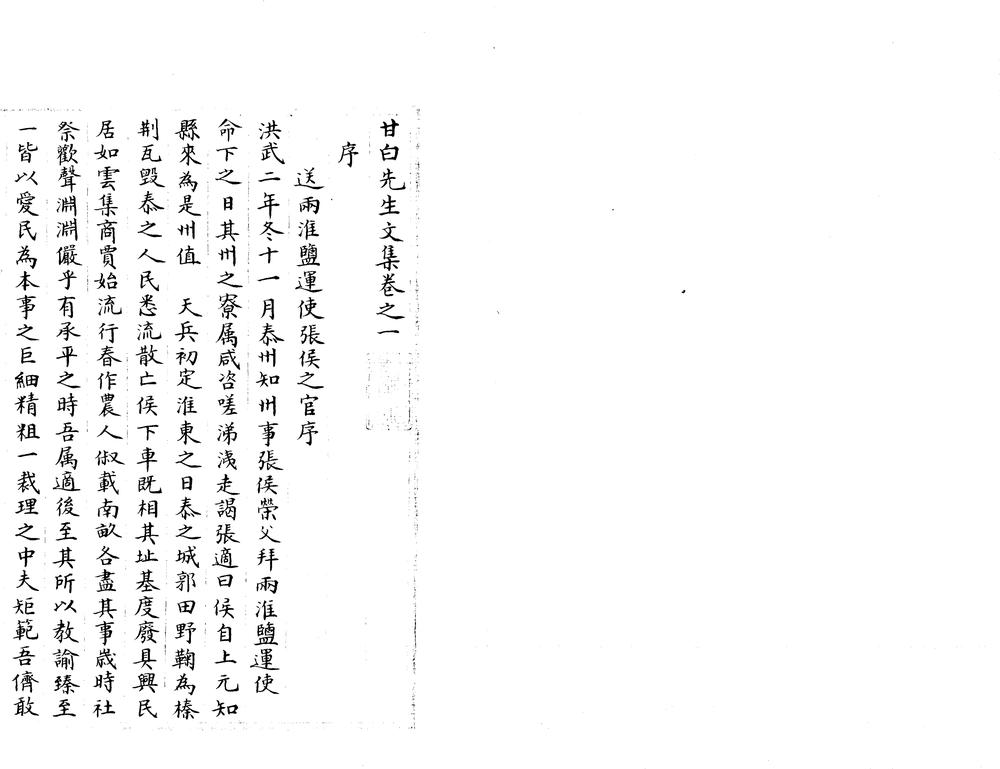 甘白先生文集卷之一
序
送兩淮鹽運使張侯之官序
洪武二年冬十一月泰州知州事張侯榮父拜兩淮鹽運使
命下之日其州之寮属咸咨嗟涕洟走謁張適曰侯自上元知
縣來為是州值 天兵初定淮東之日泰之城郭田野鞠為榛
荆瓦毁泰之人民悉流散亡侯下車既相其址基度廢具興民
居如雲集商賈始流行春作農人俶載南畝各盡其事歲時社
祭歡聲淵淵儼乎有承平之時吾属適後至其所以教諭臻至
一皆以愛民為本事之巨細精粗一裁理之中夫矩範吾儕敢